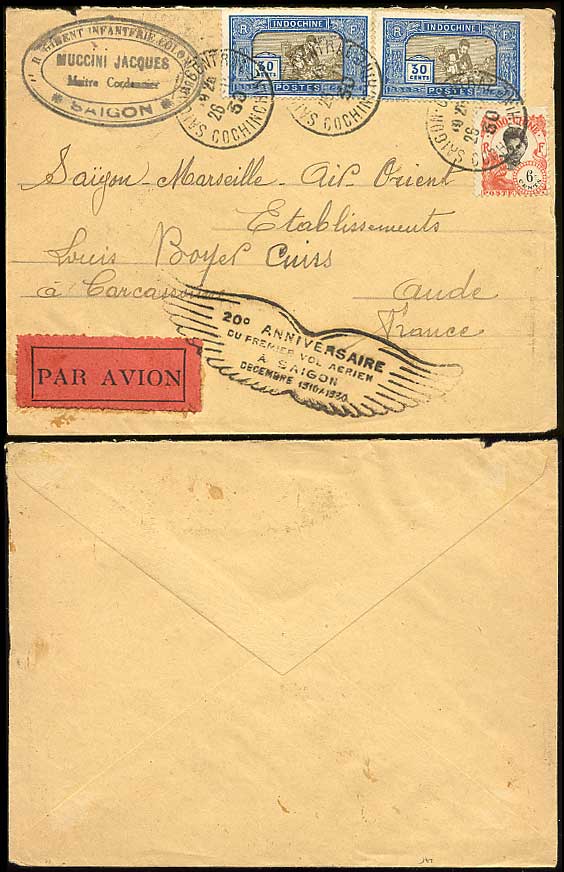 REGIMENT INFANTERIE
MUCCINI JACQUES
Maitre Cordonnier
* SAIGON *
INDOCHINE
R F
30
CENTS
POSTES
INDOCHINE
R F
30
CENTS
POSTES
INDO-CHINE
R F
6
CENTS
POSTES
SAIGON-CENTRAL COCHINCHINE
26
30
Saïgon-Marseille-Air-Orient
Etablissements
Louis Boyer Cuirs
à Carcassonne Aude
France
PAR AVION
20º ANNIVERSAIRE
DU PREMIER VOL AERIEN
À SAIGON
DECEMBRE 1910-1930